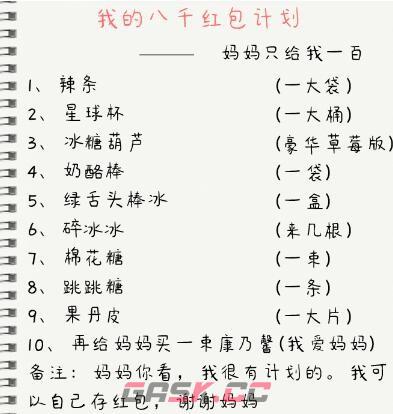 我的八千红包计划
—— 妈妈只给我一百
1、辣条 (一大袋)
2、星球杯 (一大桶)
3、冰糖葫芦 (豪华草莓版)
4、奶酪棒 (一袋)
5、绿舌头棒冰 (一盒)
6、碎冰冰 (来几根)
7、棉花糖 (一束)
8、跳跳糖 (一条)
9、果丹皮 (一大片)
10、再给妈妈买一束康乃馨(我爱妈妈)
备注：妈妈你看，我很有计划的。我可
以自己存红包，谢谢妈妈
GASK.CC